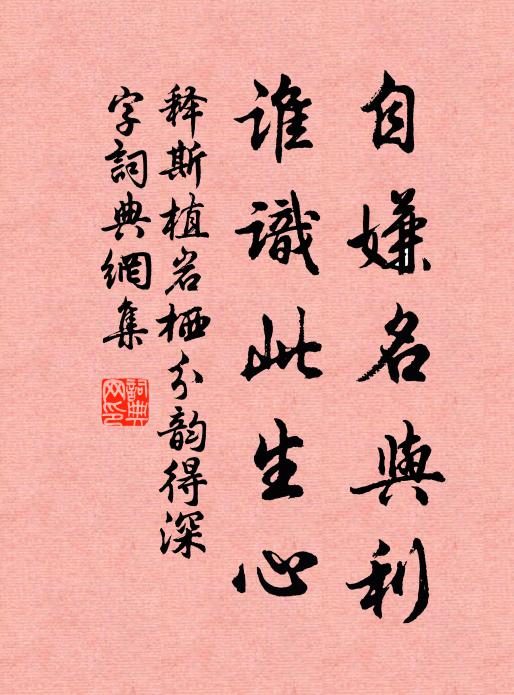 自嫌名與利
誰識此生心
释斯植岩栖分韵得深
字詞典網集
詞典網印